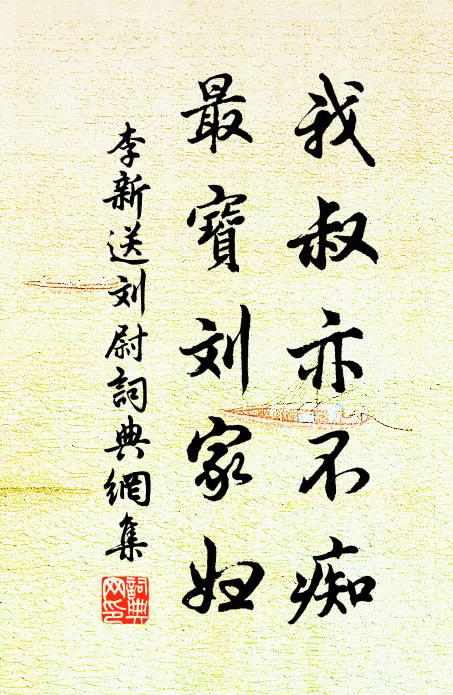 我叔亦不痴
最寶刘家妇
李新送刘尉詞典網集
詞典
网印